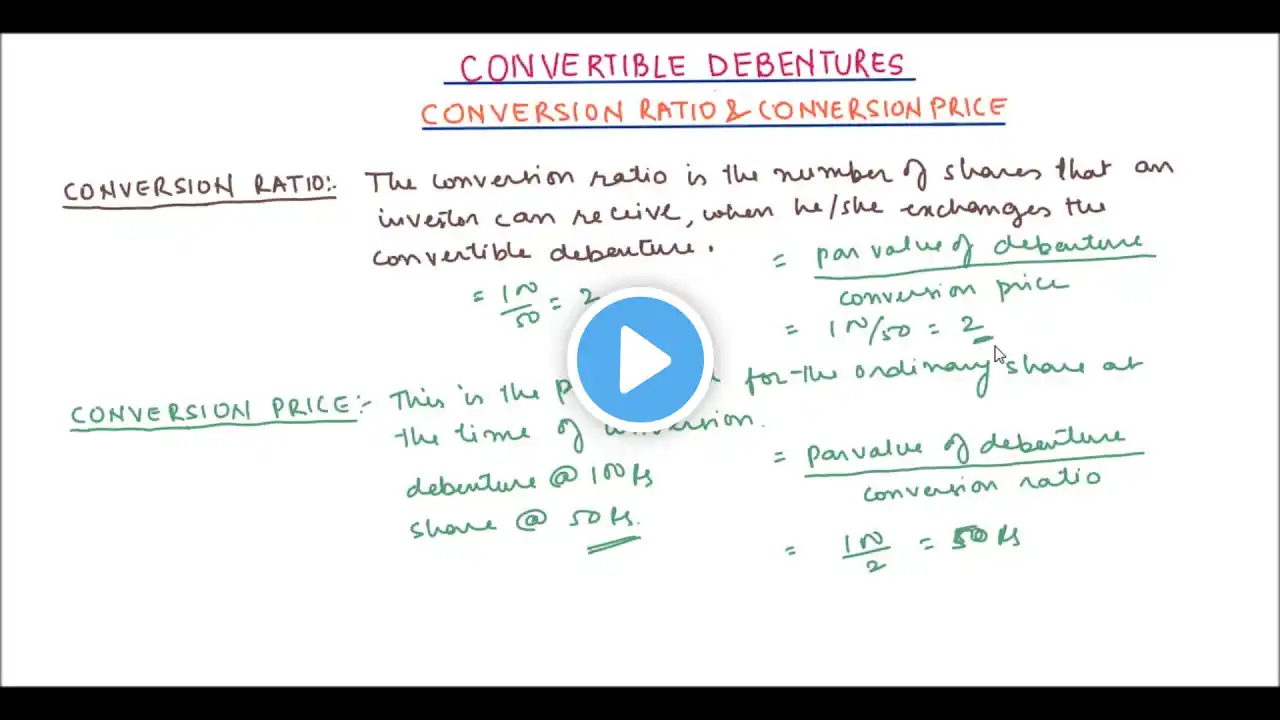 CONVERTIBLE DEBENTURES
CONVERSION RATIO & CONVERSION PRICE
CONVERSION RATIO:- The conversion ratio is the number of shares that an
investor can receive, when he/she exchanges the
convertible debenture.
= par value of debenture
conversion price
= 100/50 = 2
= 100/50 = 2
CONVERSION PRICE:- This is the for the ordinary share at
the time of conversion.
= par value of debenture
conversion ratio
debenture @ 100 Rs
share @ 50 Rs.
= 100/2 = 50 Rs